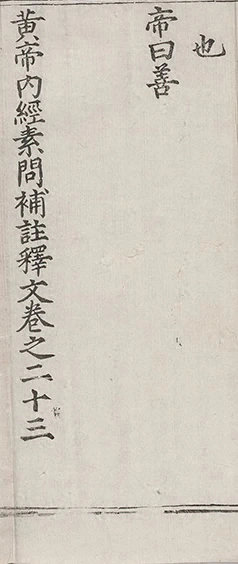 也
帝曰善
黄帝内經素問補註釋文卷之二十三